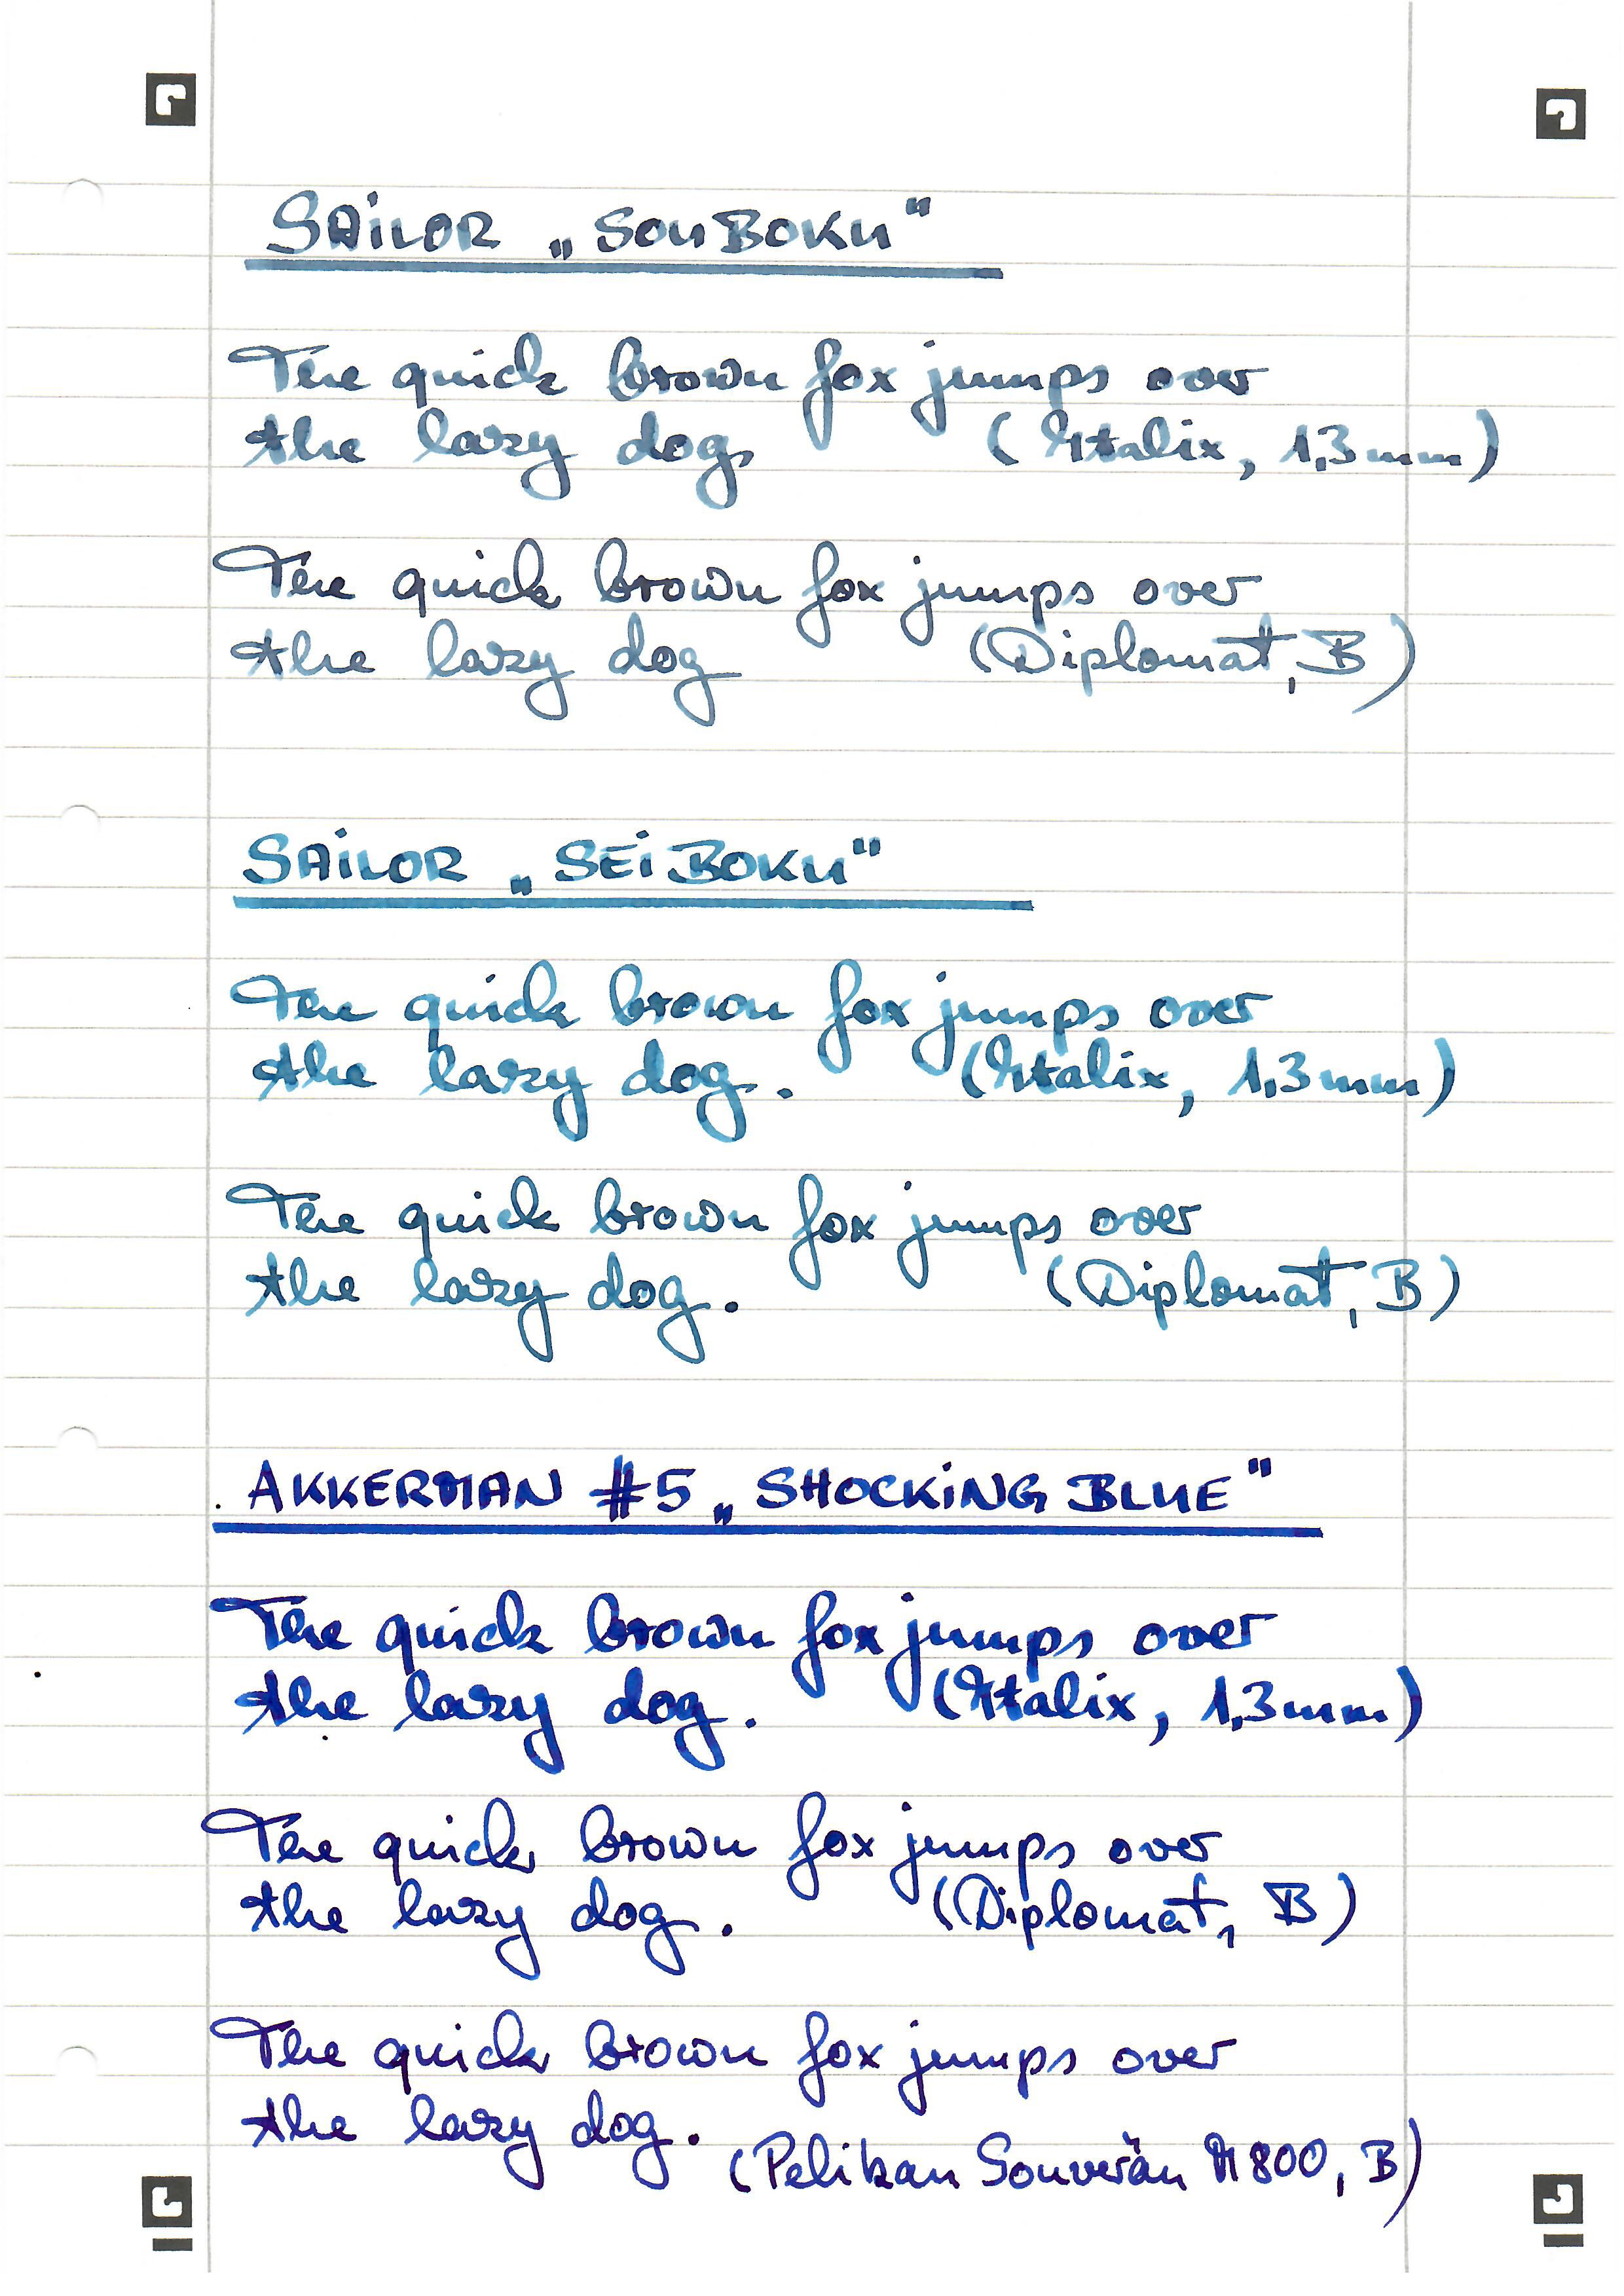 SAiLOR „SOUBOKU“
The quick brown fox jumps over
the lazy dog. (Italix, 1,3mm)
The quick brown fox jumps over
the lazy dog (Diplomat, B)
SAiLOR „SEiBOKU“
The quick brown fox jumps over
the lazy dog. (Italix, 1,3mm)
The quick brown fox jumps over
the lazy dog. (Diplomat, B)
AKKERMAN #5 „SHOCKiNG BLUE“
The quick brown fox jumps over
the lazy dog. (Italix, 1,3mm)
The quick brown fox jumps over
the lazy dog. (Diplomat, B)
The quick brown fox jumps over
the lazy dog.
(Pelikan Souverän M800, B)